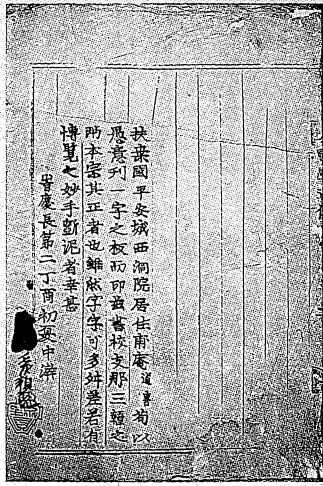 扶桒國平安城西洞院居住甫庵道喜苟以
愚意刊一字之板而印茲書校支那三韓之
兩本宗其正者也雖然字字可多舛差若有
博覽之妙手斲泥者幸甚
旹慶長第二丁酉初夏中澣